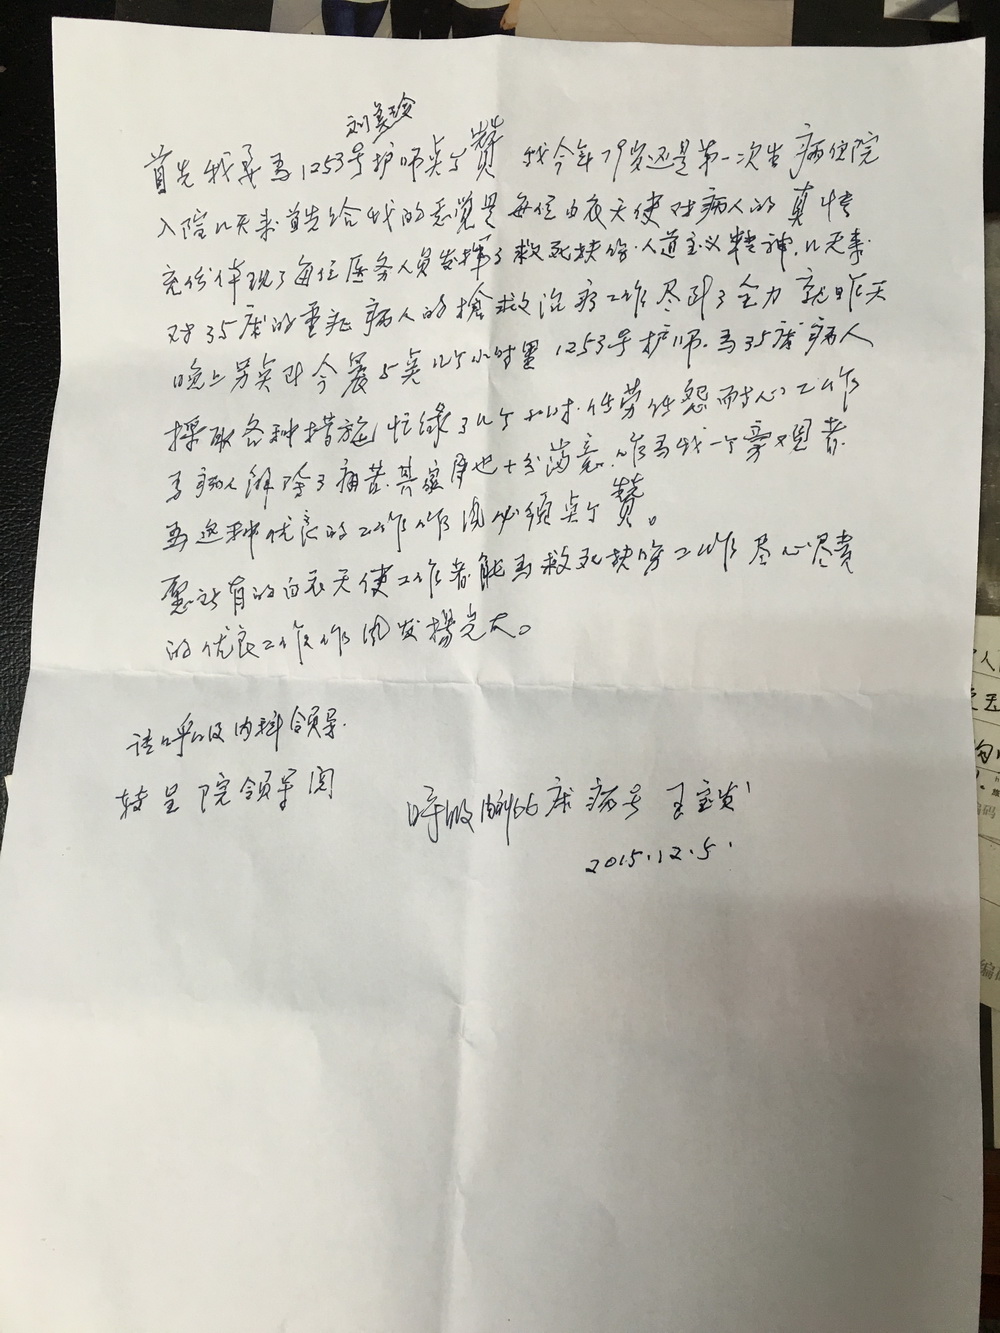 刘美玲
首先我要为1253号护师点个赞 我今年79岁还是第一次生病住院
入院几天来首先给我的感觉是每位白衣天使对病人的真情
充份体现了每位医务人员发挥了救死扶伤.人道主义精神.几天来.
对35床的重症病人的搶救治疗工作尽到了全力 就昨天
晚上9点到今晨5点几个小时里1253号护师.为35床病人
採取各种措施忙绿了几个小时.任劳任怨耐心工作
为病人解除了痛苦.其家属也十分满意.作为我一个旁观者.
为这种优良的工作作风必须点个赞。
愿所有的白衣天使工作者能为救死扶伤工作尽心尽责
的优良工作作风发揚光大。
请呼吸内科领导.
转呈院领导阅
呼吸内科66床病号 王宝发
2015.12.5.
人